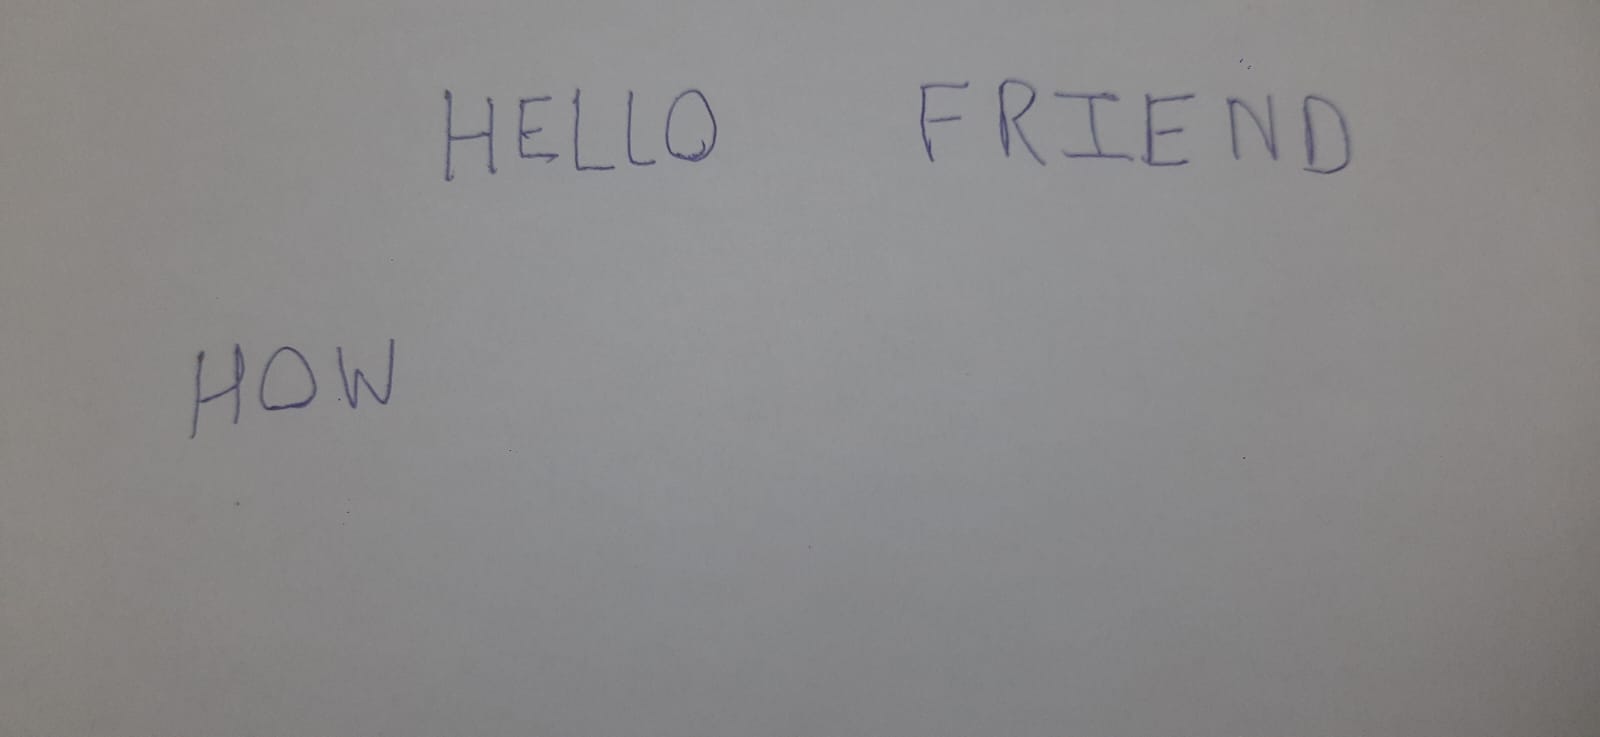 HELLO FRIEND
HOW